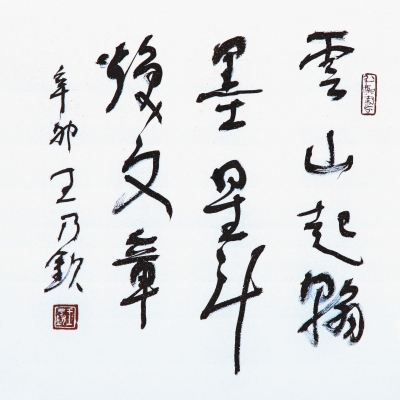 雲山起翰
墨星斗
焕文章
辛卯王乃欽